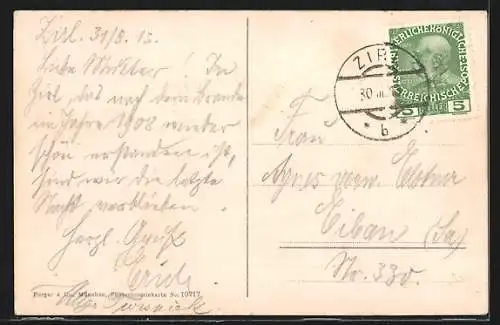 Zirl. 31/8. 13.
Liebe Mutter! In
Zirl, das nach dem Brande
im Jahre 1908 wieder
schön erstanden ist,
sind wir die letzte
Nacht verblieben.
Herzl. Gruß
Purger & Co., München, Photochromiekarte No. 10717
ZIRL
30
b
KAISERLICHEKÖNIGLICHE
ÖSTERREICHISCHE
5 5
Frau
Agnes verw. Elstner
Eibau (Sa.)
Nr. 330.